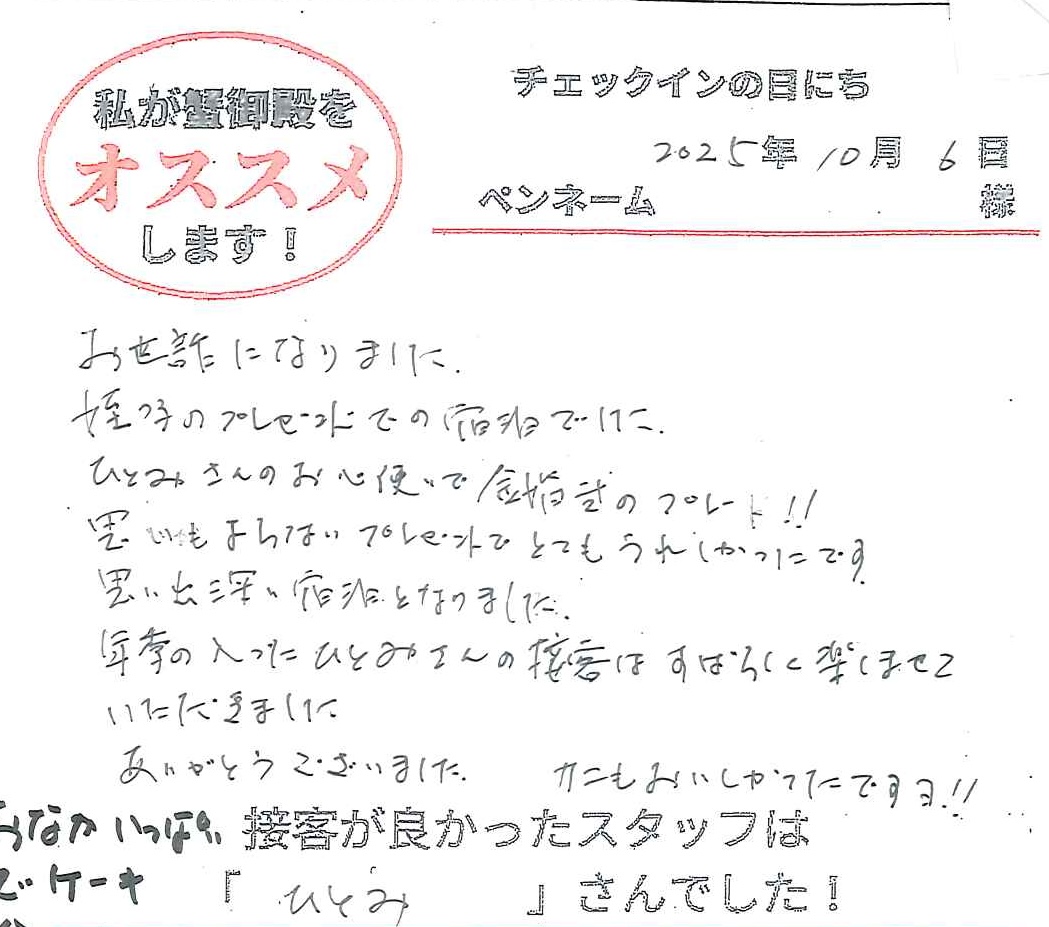 私が蟹御殿を
オススメ
します！
チェックインの日にち
2025年 10月 6日
ペンネーム 様
お世話になりました.
姪っ子のプレゼントでの宿泊でした.
ひとみさんのお心使いで金婚式のプレート!!
思いもよらないプレゼントでとてもうれしかったです
思い出深い宿泊となりました.
年季の入ったひとみさんの接客はすばらしく楽しませて
いただきました
ありがとうございました. カニもおいしかったですヨ!!
おなかいっぱい
でケーキ
接客が良かったスタッフは
「 ひとみ 」さんでした！